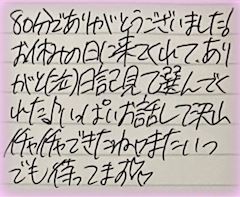 80分でありがとうございました!
お休みの日に来てくれて、あり
がと(泣)日記見て選んでく
れた♪いっぱいお話して沢山
イチャイチャできたね♡またいつ
でも待ってます♡